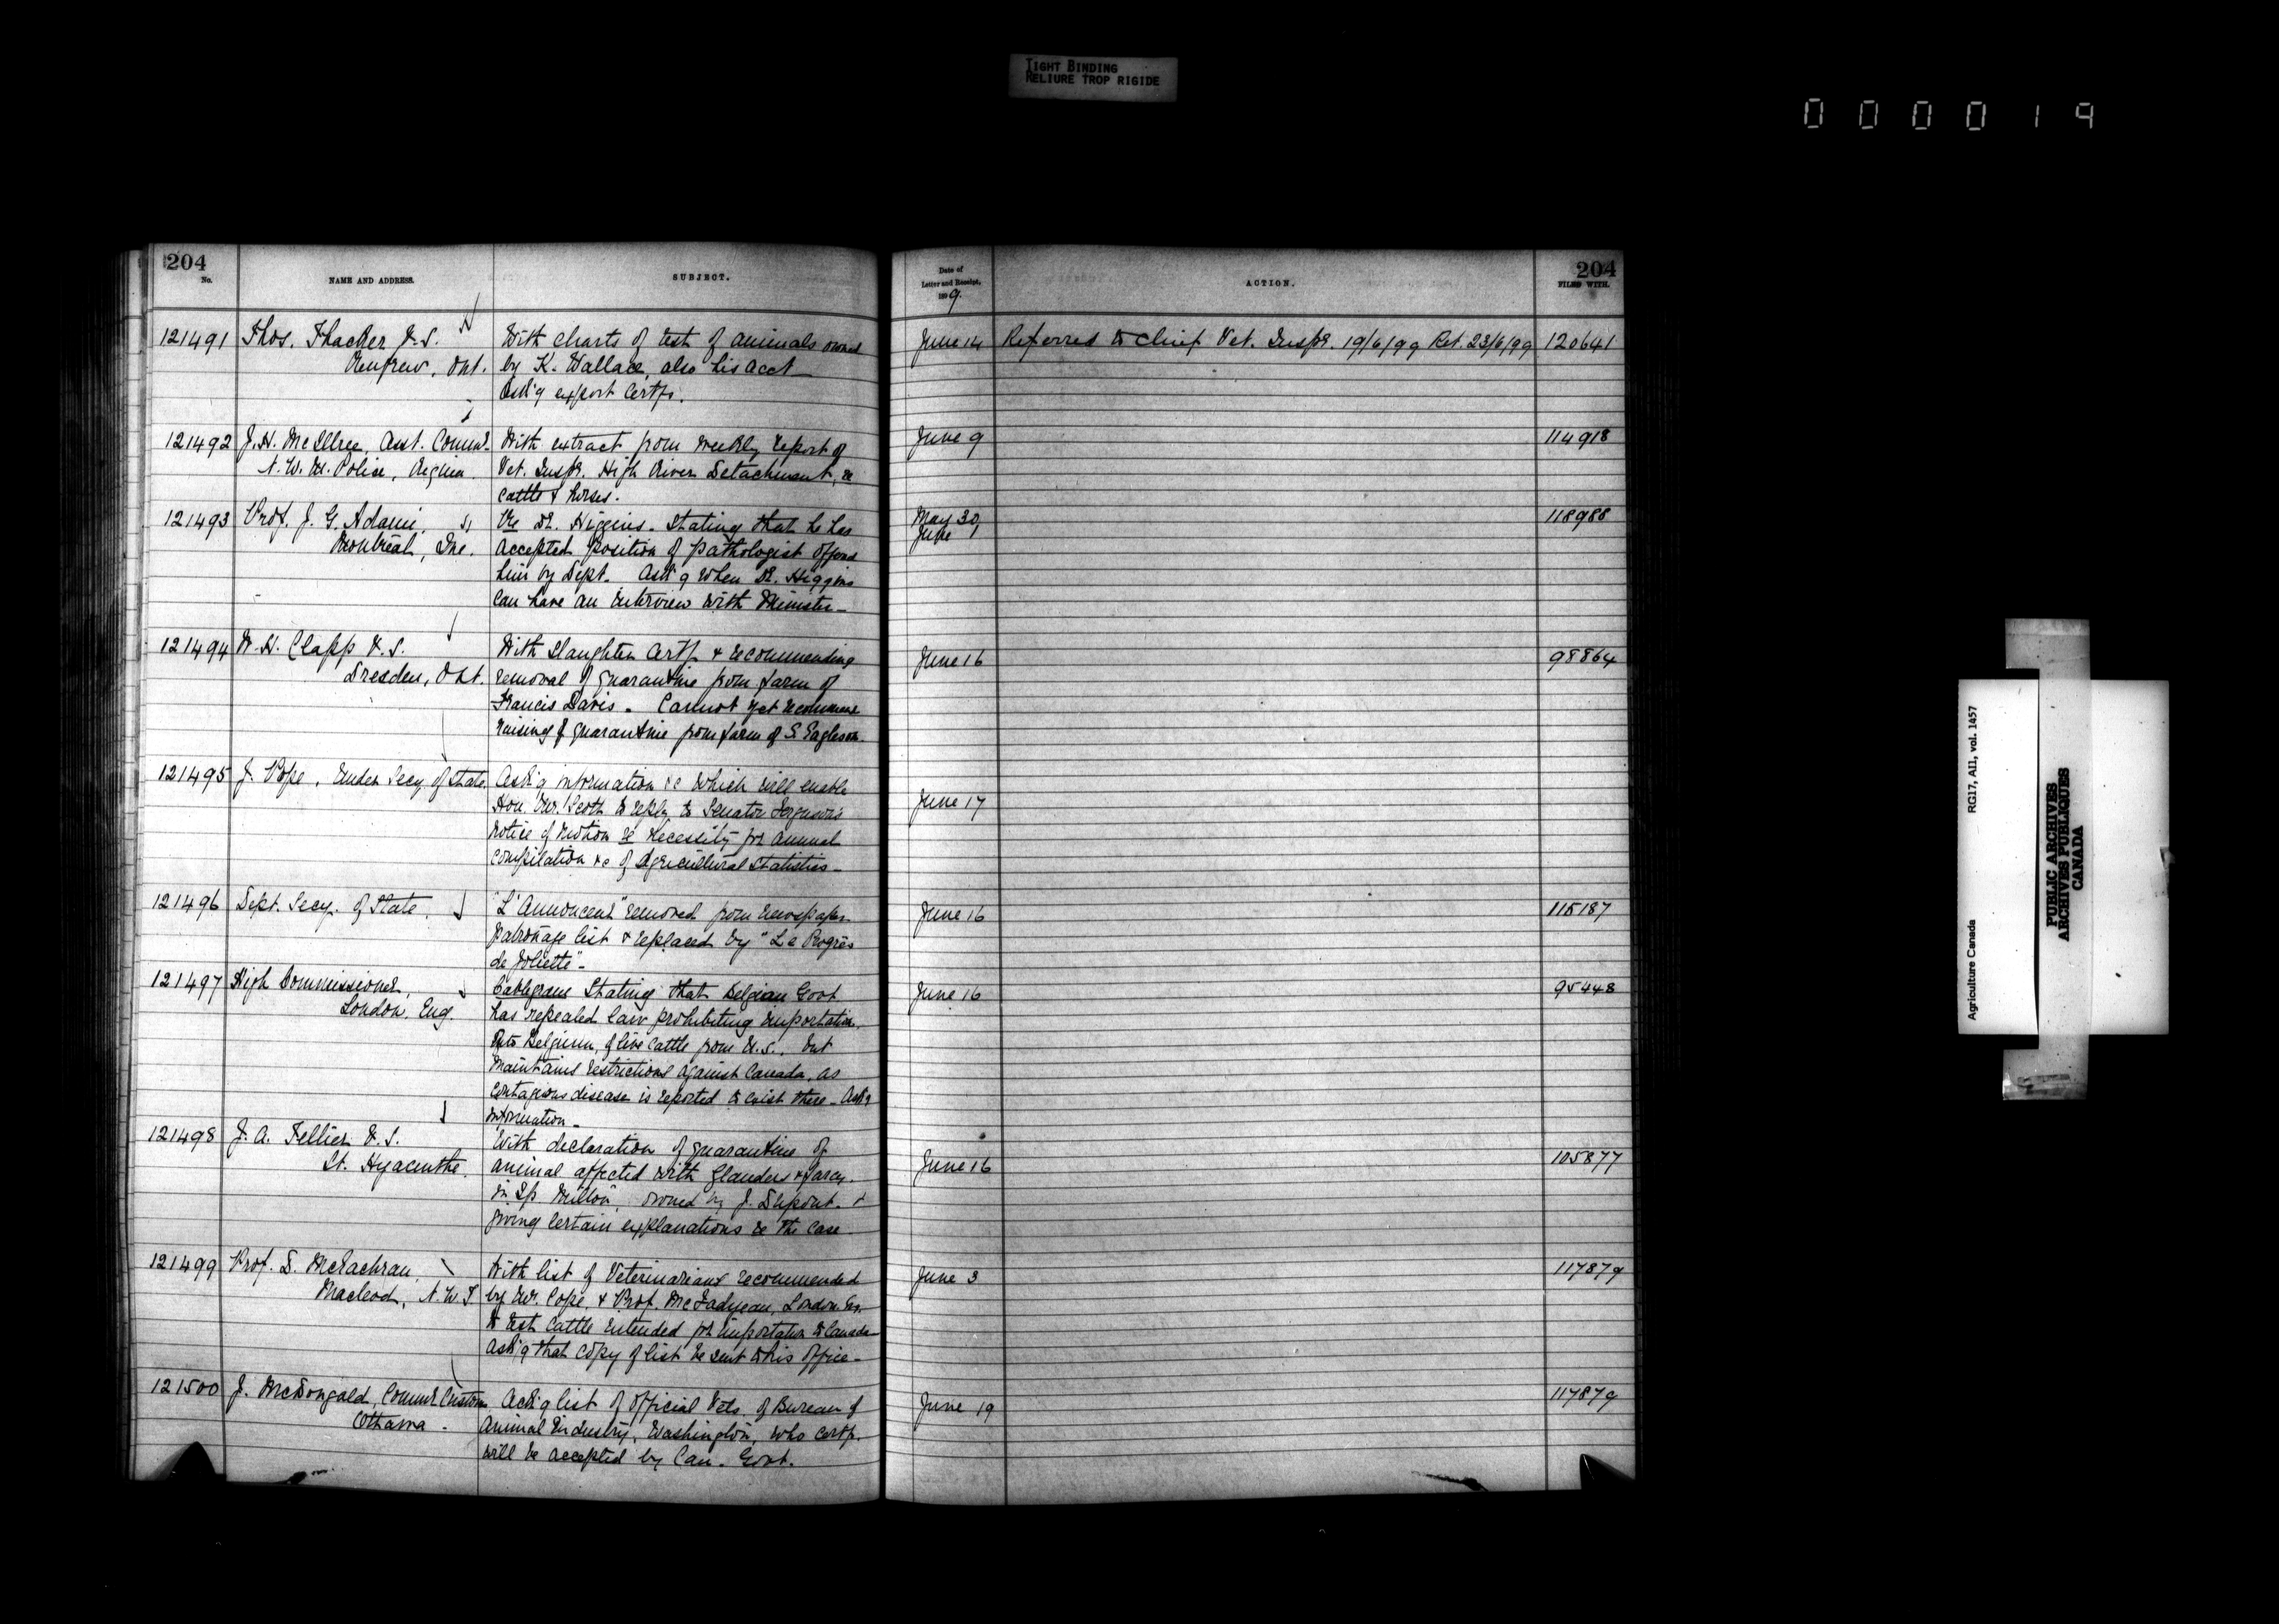 TIGHT BINDING
RELIURE TROP RIGIDE
000019
204
No.
NAME AND ADDRESS.
SUBJECT.
Date of
Letter and Receipt,
1899.
ACTION.
204
FILED WITH.
121491 Thos. Thacker V.S. With charts of test of animals owned June 14 Referred to Chief Vet. Inspr. 19/6/99 Ret. 23/6/99 120641
Renfrew, Ont. by K. Wallace, also his acct
Ask'g export Certfs.
121492 J.H. McIllree, Asst. Commr. With extract from weekly report of June 9 114918
N.W.M. Police, Regina. Vet. Inspr. High River Detachment, re
cattle & horses.
121493 Prof. J. G. Adami, Re Dr. Higgins. Stating that he has May 30, 118988
Montreal, Que. accepted position of pathologist offered June 1
him by Dept. Ask'g when Dr. Higgins
can have an interview with Minister-
121494 W.H. Clapp V.S. With Slaughter Certf. & recommending June 16 98864
Dresden, Ont. removal of quarantine from farm of
Francis Davis. Cannot yet recommend
raising of quarantine from farm of S. Eagleson.
121495 J. Pope, Under Secy. of State. Ask'g information &c which will enable
Hon. Mr. Scott to reply to Senator Ferguson's June 17
notice of motion re necessity for annual
compilation &c of Agricultural Statistics-
121496 Dept. Secy. of State. "L'Annonceur" removed from newspaper June 16 115187
patronage list & replaced by "Le Progrès
de Joliette"-
121497 High Commissioner, Cablegram Stating that Belgian Govt June 16 95448
London, Eng. has repealed law prohibiting importation,
into Belgium, of live cattle from U.S., but
maintains restrictions against Canada, as
contagious disease is reported to exist there - Ask'g
information-
121498 J. A. Tellier V.S. With declaration of quarantine of
St. Hyacinthe. animal affected with Glanders & farcy. June 16 105877
in Tp Milton, owned by J. Dupont. &
giving certain explanations re the case
121499 Prof. D. McEachran, With list of Veterinarians recommended June 3 117879
Macleod, N.W.T by Mr. Cope, & Prof. McFadyean, London Eng.
to test cattle intended for importation to Canada-
ask'g that copy of list be sent to his office-
121500 J. McDougald, Commr. Customs Ask'g list of official Vets. of Bureau of June 19 117879
Ottawa. Animal Industry, Washington, who certf.
will be accepted by Can. Govt.
Agriculture Canada RG17, AII, vol. 1457
PUBLIC ARCHIVES
ARCHIVES PUBLIQUES
CANADA